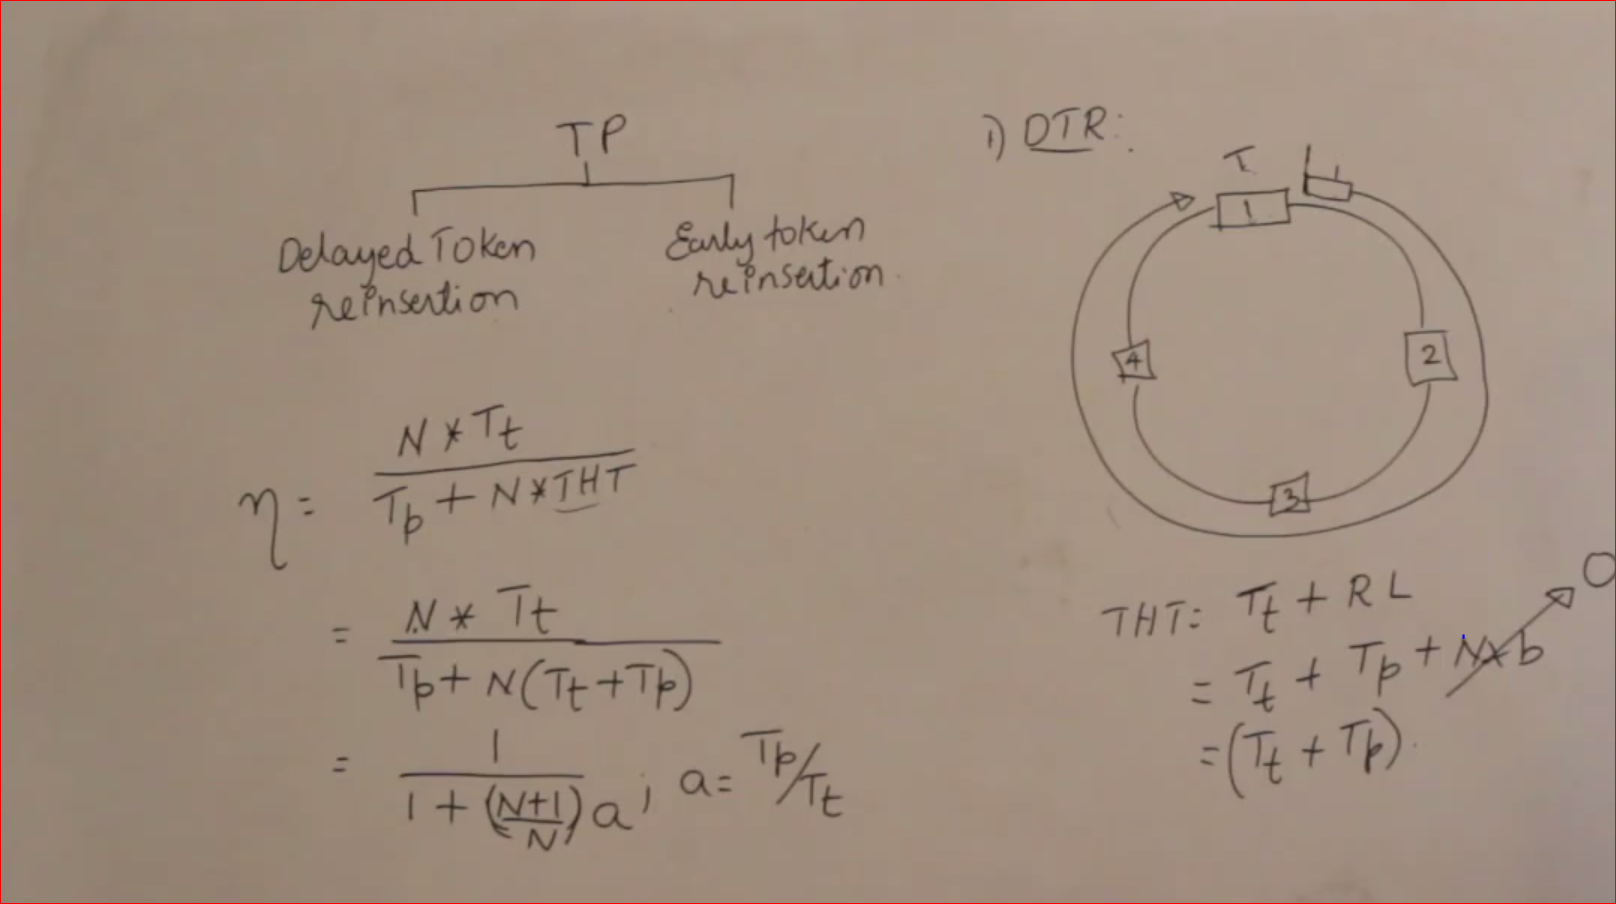 TP
Delayed Token
reinsertion
Early token
reinsertion
η = N * Tt / Tp + N * THT
= N * Tt / Tp + N(Tt + Tp)
= 1 / 1 + (N+1/N) a ; a = Tp/Tt
1) DTR:
T
1
2
3
4
THT: Tt + RL
= Tt + Tp + N*b 0
= (Tt + Tp)